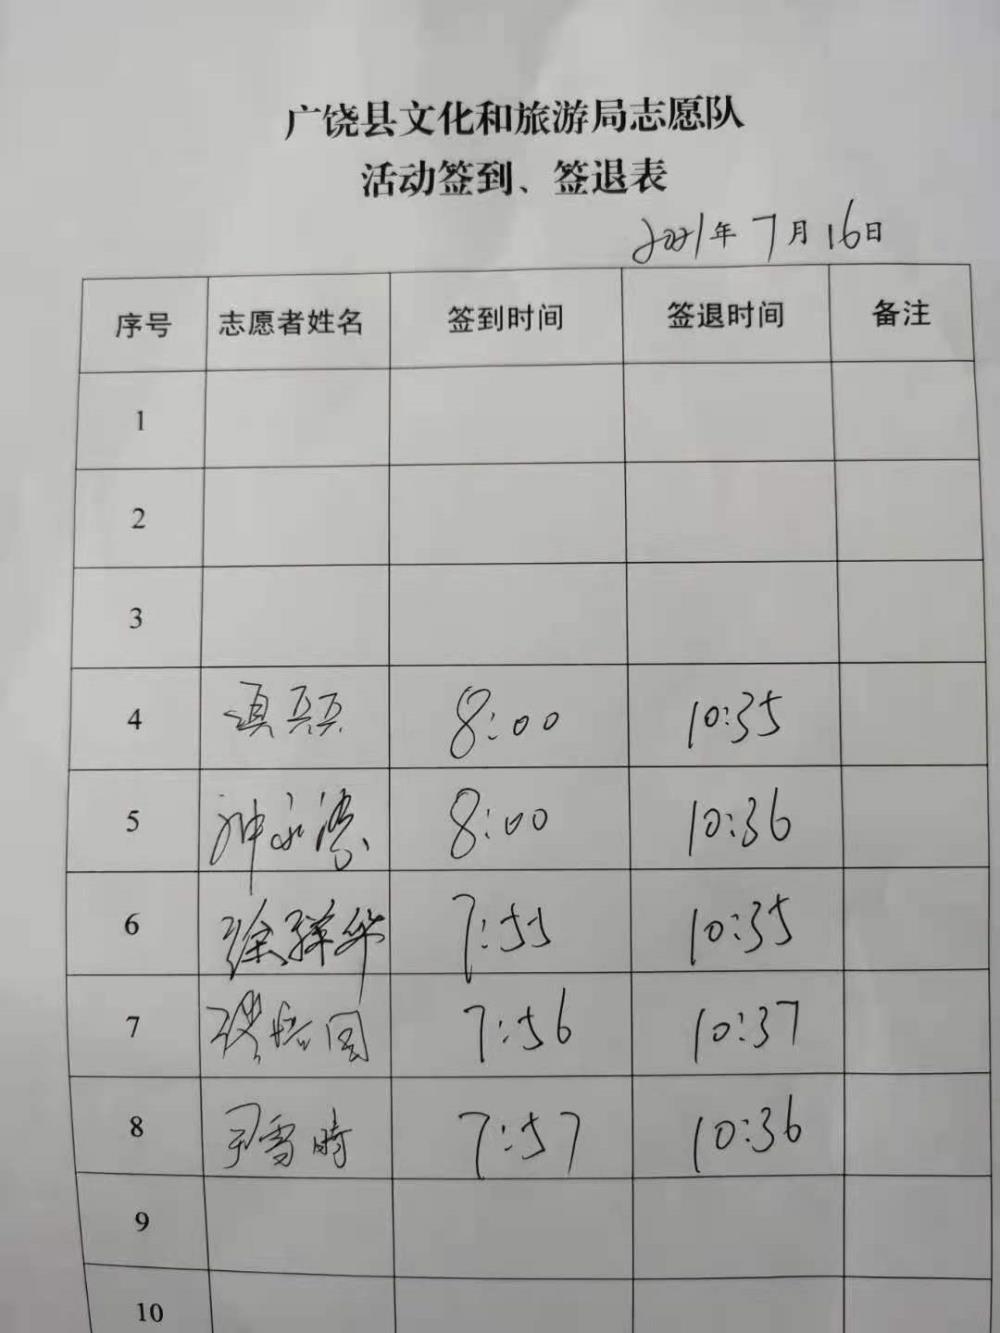 广饶县文化和旅游局志愿队
活动签到、签退表
2021年7月16日
序号 志愿者姓名 签到时间 签退时间 备注
1
2
3
4 8:00 10:35
5 8:00 10:36
6 徐祥华 7:55 10:35
7 7:56 10:37
8 7:57 10:36
9
10